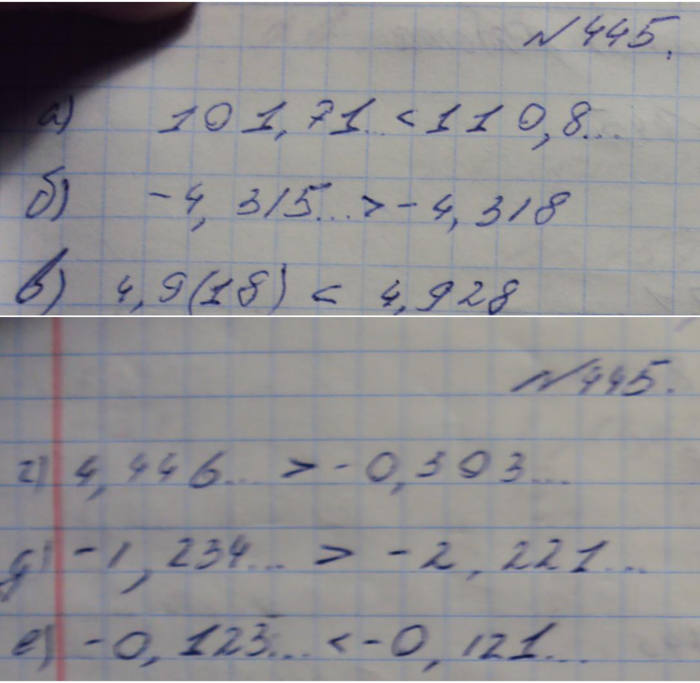 №445.
а) 101,71... < 110,8...
б) -4,315... > -4,318
в) 4,9(18) < 4,928
№445.
г) 4,446... > -0,303...
д) -1,234... > -2,221...
е) -0,123... < -0,121...